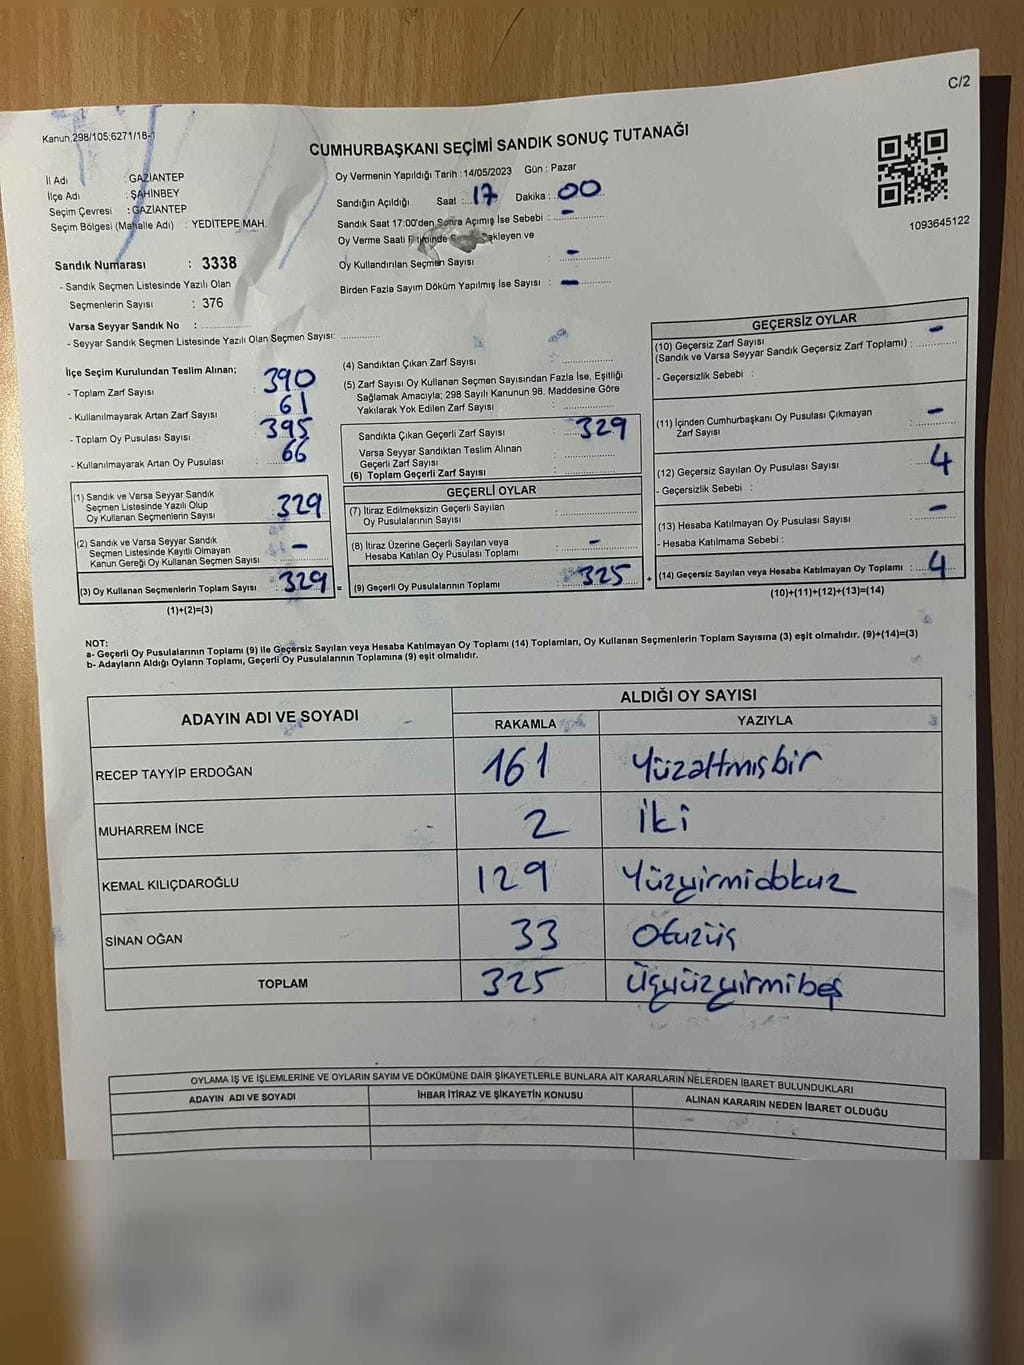 C/2
Kanun,298/105;6271/18-1
CUMHURBAŞKANI SEÇİMİ SANDIK SONUÇ TUTANAĞI
İl Adı : GAZİANTEP
İlçe Adı : ŞAHİNBEY
Seçim Çevresi : GAZİANTEP
Seçim Bölgesi (Mahalle Adı) : YEDİTEPE MAH.
Sandık Numarası : 3338
- Sandık Seçmen Listesinde Yazılı Olan
Seçmenlerin Sayısı : 376
Varsa Seyyar Sandık No :
- Seyyar Sandık Seçmen Listesinde Yazılı Olan Seçmen Sayısı:
Oy Vermenin Yapıldığı Tarih :14/05/2023 Gün : Pazar
Sandığın Açıldığı Saat : 17 Dakika : 00
Sandık Saat 17:00'den Sonra Açımış İse Sebebi : -
Oy Verme Saati Bekleyen ve
Oy Kullandırılan Seçmen Sayısı : -
Birden Fazla Sayım Döküm Yapılmış İse Sayısı : -
1093645122
İlçe Seçim Kurulundan Teslim Alınan;
- Toplam Zarf Sayısı : 390
- Kullanılmayarak Artan Zarf Sayısı : 61
- Toplam Oy Pusulası Sayısı : 395
- Kullanılmayarak Artan Oy Pusulası : 66
(1) Sandık ve Varsa Seyyar Sandık
Seçmen Listesinde Yazılı Olup
Oy Kullanan Seçmenlerin Sayısı : 329
(2) Sandık ve Varsa Seyyar Sandık
Seçmen Listesinde Kayıtlı Olmayan
Kanun Gereği Oy Kullanan Seçmen Sayısı : -
(3) Oy Kullanan Seçmenlerin Toplam Sayısı : 329 =
(1)+(2)=(3)
(4) Sandıktan Çıkan Zarf Sayısı :
(5) Zarf Sayısı Oy Kullanan Seçmen Sayısından Fazla İse, Eşitliği
Sağlamak Amacıyla; 298 Sayılı Kanunun 98. Maddesine Göre
Yakılarak Yok Edilen Zarf Sayısı :
Sandıkta Çıkan Geçerli Zarf Sayısı : 329
Varsa Seyyar Sandıktan Teslim Alınan
Geçerli Zarf Sayısı :
(6) Toplam Geçerli Zarf Sayısı :
GEÇERLİ OYLAR
(7) İtiraz Edilmeksizin Geçerli Sayılan
Oy Pusulalarının Sayısı :
(8) İtiraz Üzerine Geçerli Sayılan veya
Hesaba Katılan Oy Pusulası Toplamı : -
(9) Geçerli Oy Pusulalarının Toplamı : 325 +
GEÇERSİZ OYLAR
(10) Geçersiz Zarf Sayısı
(Sandık ve Varsa Seyyar Sandık Geçersiz Zarf Toplamı) : -
- Geçersizlik Sebebi :
(11) İçinden Cumhurbaşkanı Oy Pusulası Çıkmayan
Zarf Sayısı : -
(12) Geçersiz Sayılan Oy Pusulası Sayısı : 4
- Geçersizlik Sebebi :
(13) Hesaba Katılmayan Oy Pusulası Sayısı : -
- Hesaba Katılmama Sebebi :
(14) Geçersiz Sayılan veya Hesaba Katılmayan Oy Toplamı : 4
(10)+(11)+(12)+(13)=(14)
NOT:
a- Geçerli Oy Pusulalarının Toplamı (9) ile Geçersiz Sayılan veya Hesaba Katılmayan Oy Toplamı (14) Toplamları, Oy Kullanan Seçmenlerin Toplam Sayısına (3) eşit olmalıdır. (9)+(14)=(3)
b- Adayların Aldığı Oyların Toplamı, Geçerli Oy Pusulalarının Toplamına (9) eşit olmalıdır.
ADAYIN ADI VE SOYADI ALDIĞI OY SAYISI
RAKAMLA YAZIYLA
RECEP TAYYİP ERDOĞAN 161 Yüzaltmışbir
MUHARREM İNCE 2 İki
KEMAL KILIÇDAROĞLU 129 Yüzyirmidokuz
SİNAN OĞAN 33 Otuzüç
TOPLAM 325 Üçyüzyirmibeş
OYLAMA İŞ VE İŞLEMLERİNE VE OYLARIN SAYIM VE DÖKÜMÜNE DAİR ŞİKAYETLERLE BUNLARA AİT KARARLARIN NELERDEN İBARET BULUNDUKLARI
ADAYIN ADI VE SOYADI İHBAR İTİRAZ VE ŞİKAYETİN KONUSU ALINAN KARARIN NEDEN İBARET OLDUĞU